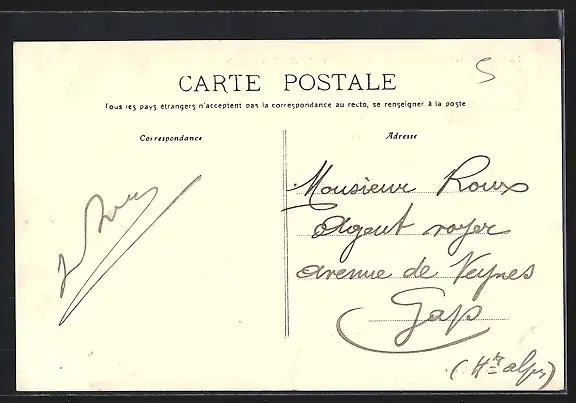 CARTE POSTALE
Tous les pays étrangers n'acceptent pas la correspondance au recto, se renseigner à la poste
Correspondance
Adresse
5
Monsieur Roux
Agent voyer
avenue de Veynes
Gap
(Htes alpes)